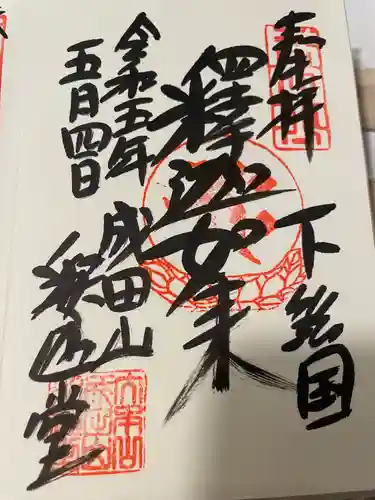 奉拝
下総国
釋迦如来
成田山
令和五年
五月四日
釈迦堂